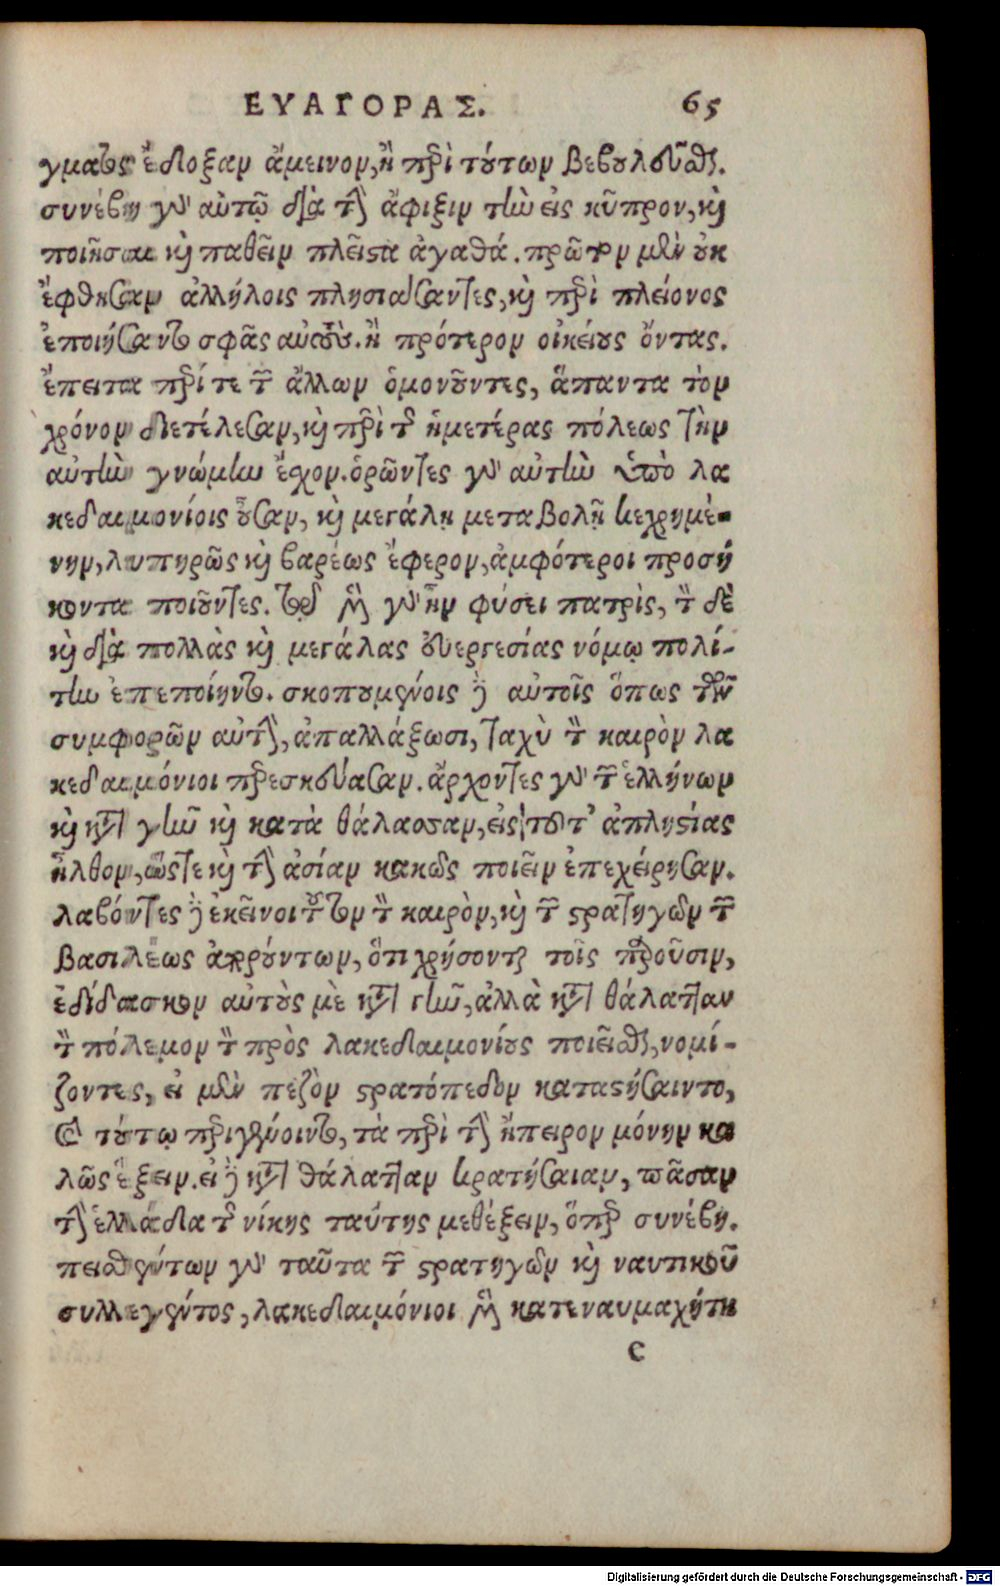 ΕΥΑΓΟΡΑΣ. 65
γματος ἔδοξαν ἄμεινον, ἢ περὶ τούτων βεβουλεῦσθαι.
συνέβη γὰρ αὐτῷ διὰ τὴν ἄφιξιν τὴν εἰς κῦπρον, καὶ
ποιῆσαι καὶ παθεῖν πλεῖστα ἀγαθά. πρῶτον μὲν οὐκ
ἔφθησαν ἀλλήλοις πλησιάσαντες, καὶ περὶ πλείονος
ἐποιήσαντο σφᾶς αὐτοὺς. ἢ πρότερον οἰκείους ὄντας.
ἔπειτα περί τε τῶν ἄλλων ὁμονοῦντες, ἅπαντα τὸν
χρόνον διετέλεσαν, καὶ περὶ τῆς ἡμετέρας πόλεως τὴν
αὐτὴν γνώμην ἔχον. ὁρῶντες γὰρ αὐτὴν ὑπὸ λα
κεδαιμονίοις οὖσαν, καὶ μεγάλῃ μεταβολῇ κεχρημέ-
νην, λυπηρῶς καὶ βαρέως ἔφερον, ἀμφότεροι προσή
κοντα ποιοῦντες. τῷ μὲν γὰρ ἦν φύσει πατρὶς, τὸν δὲ
καὶ διὰ πολλὰς καὶ μεγάλας εὐεργεσίας νόμῳ πολί-
την ἐπεποίηντο. σκοπουμένοις δὲ αὐτοῖς ὅπως τῶν
συμφορῶν αὐτὴν, ἀπαλλάξωσι, ταχὺ τὸν καιρὸν λα
κεδαιμόνιοι παρεσκεύασαν. ἄρχοντες γὰρ τῶν ἑλλήνων
καὶ κατὰ γῆν καὶ κατὰ θάλασσαν, εἰς τοῦτ' ἀπληστίας
ἦλθον, ὥστε καὶ τὴν ἀσίαν κακῶς ποιεῖν ἐπεχείρησαν.
λαβόντες δὲ ἐκεῖνοι τοῦτον τὸν καιρὸν, καὶ τῶν στρατηγῶν τῶν
βασιλέως ἀπορούντων, ὅτι χρήσονται τοῖς παροῦσιν,
ἐδίδασκον αὐτοὺς μὲ κατὰ γῆν, ἀλλὰ κατὰ θάλατταν
τὸν πόλεμον τὸν πρὸς λακεδαιμονίους ποιεῖσθαι, νομί-
ζοντες, εἰ μὲν πεζὸν στρατόπεδον καταστήσαιντο,
καὶ τούτῳ περιγένοιντο, τὰ περὶ τὴν ἤπειρον μόνην κα
λῶς ἕξειν. εἰ δὲ κατὰ θάλατταν κρατήσαιαν, πᾶσαν
τὴν ἑλλάδα τῆς νίκης ταύτης μεθέξειν, ὅπερ συνέβη.
πεισθέντων γὰρ ταῦτα τῶν στρατηγῶν καὶ ναυτικοῦ
συλλεγέντος, λακεδαιμόνιοι μὲν κατεναυμαχήθη
e
Digitalisierung gefördert durch die Deutsche Forschungsgemeinschaft - DFG